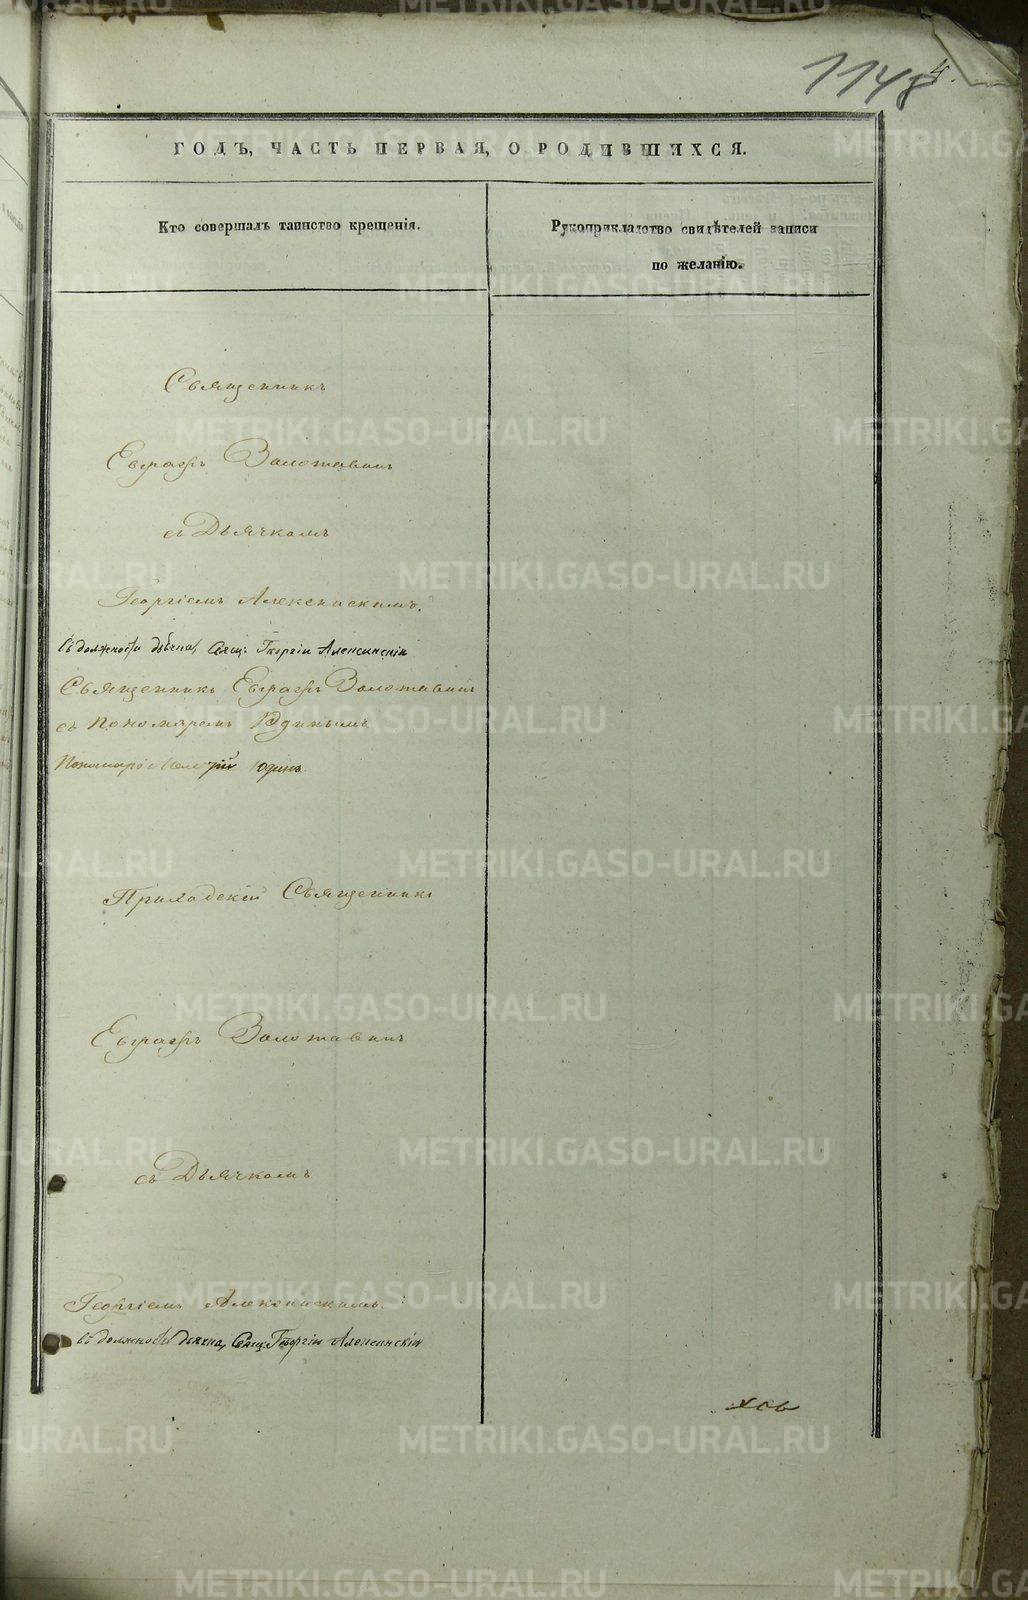 1148
4.
ГОДЪ, ЧАСТЬ ПЕРВАЯ, О РОДИВШИХСЯ.
Кто совершалъ таинство крещенія.
Рукоприкладство свидѣтелей записи
по желанію.
Священникъ
Евграфъ Золотавинъ
съ Дьячкомъ
Георгіемъ Алексинскимъ.
Въ должности дьячка, Свящ: Георгій Алексинскій
Священникъ Евграфъ Золотавинъ
съ Пономаремъ Юдинымъ
Пономарь Юдинъ
Приходскій Священникъ
Евграфъ Золотавинъ
съ Дьячкомъ
Георгіемъ Алексинскимъ.
въ должности дьячка, Свящ: Георгій Алексинскій
METRIKI.GASO-URAL.RU